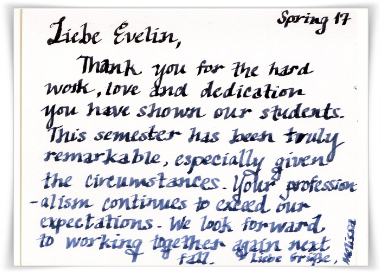 Spring 17
Liebe Evelin,
Thank you for the hard
work, love and dedication
you have shown our students.
This semester has been truly
remarkable, especially given
the circumstances. Your profession
-alism continues to exceed our
expectations. We look forward
to working together again next
fall. Liebe Grüße,
Melissa